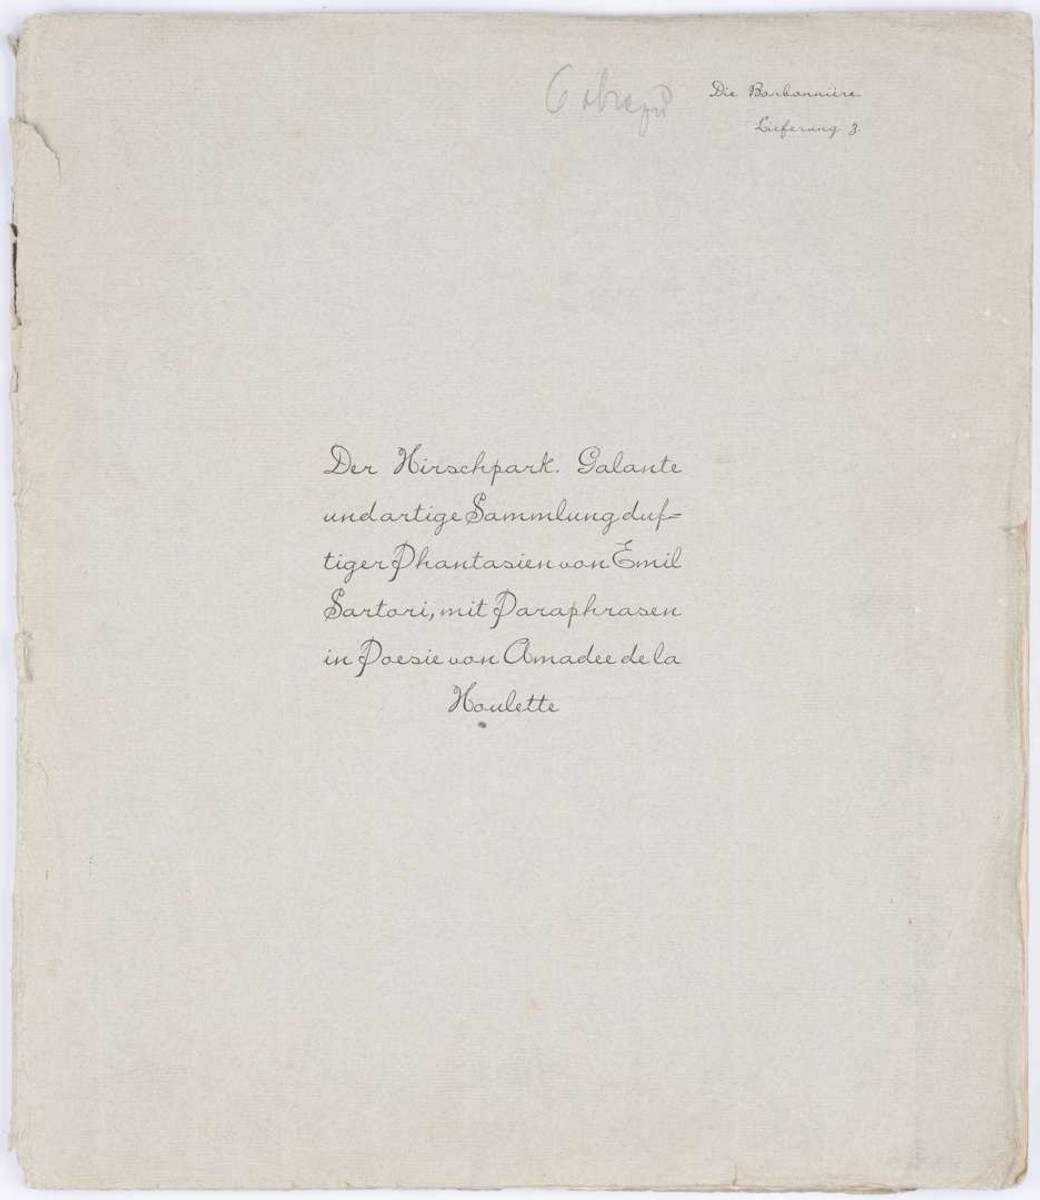 Die Borbonnière
Lieferung 3.
Der Hirschpark. Galante
und artige Sammlung duf=
tiger Phantasien von Emil
Sartori, mit Paraphrasen
in Poesie von Amadee de la
Houlette